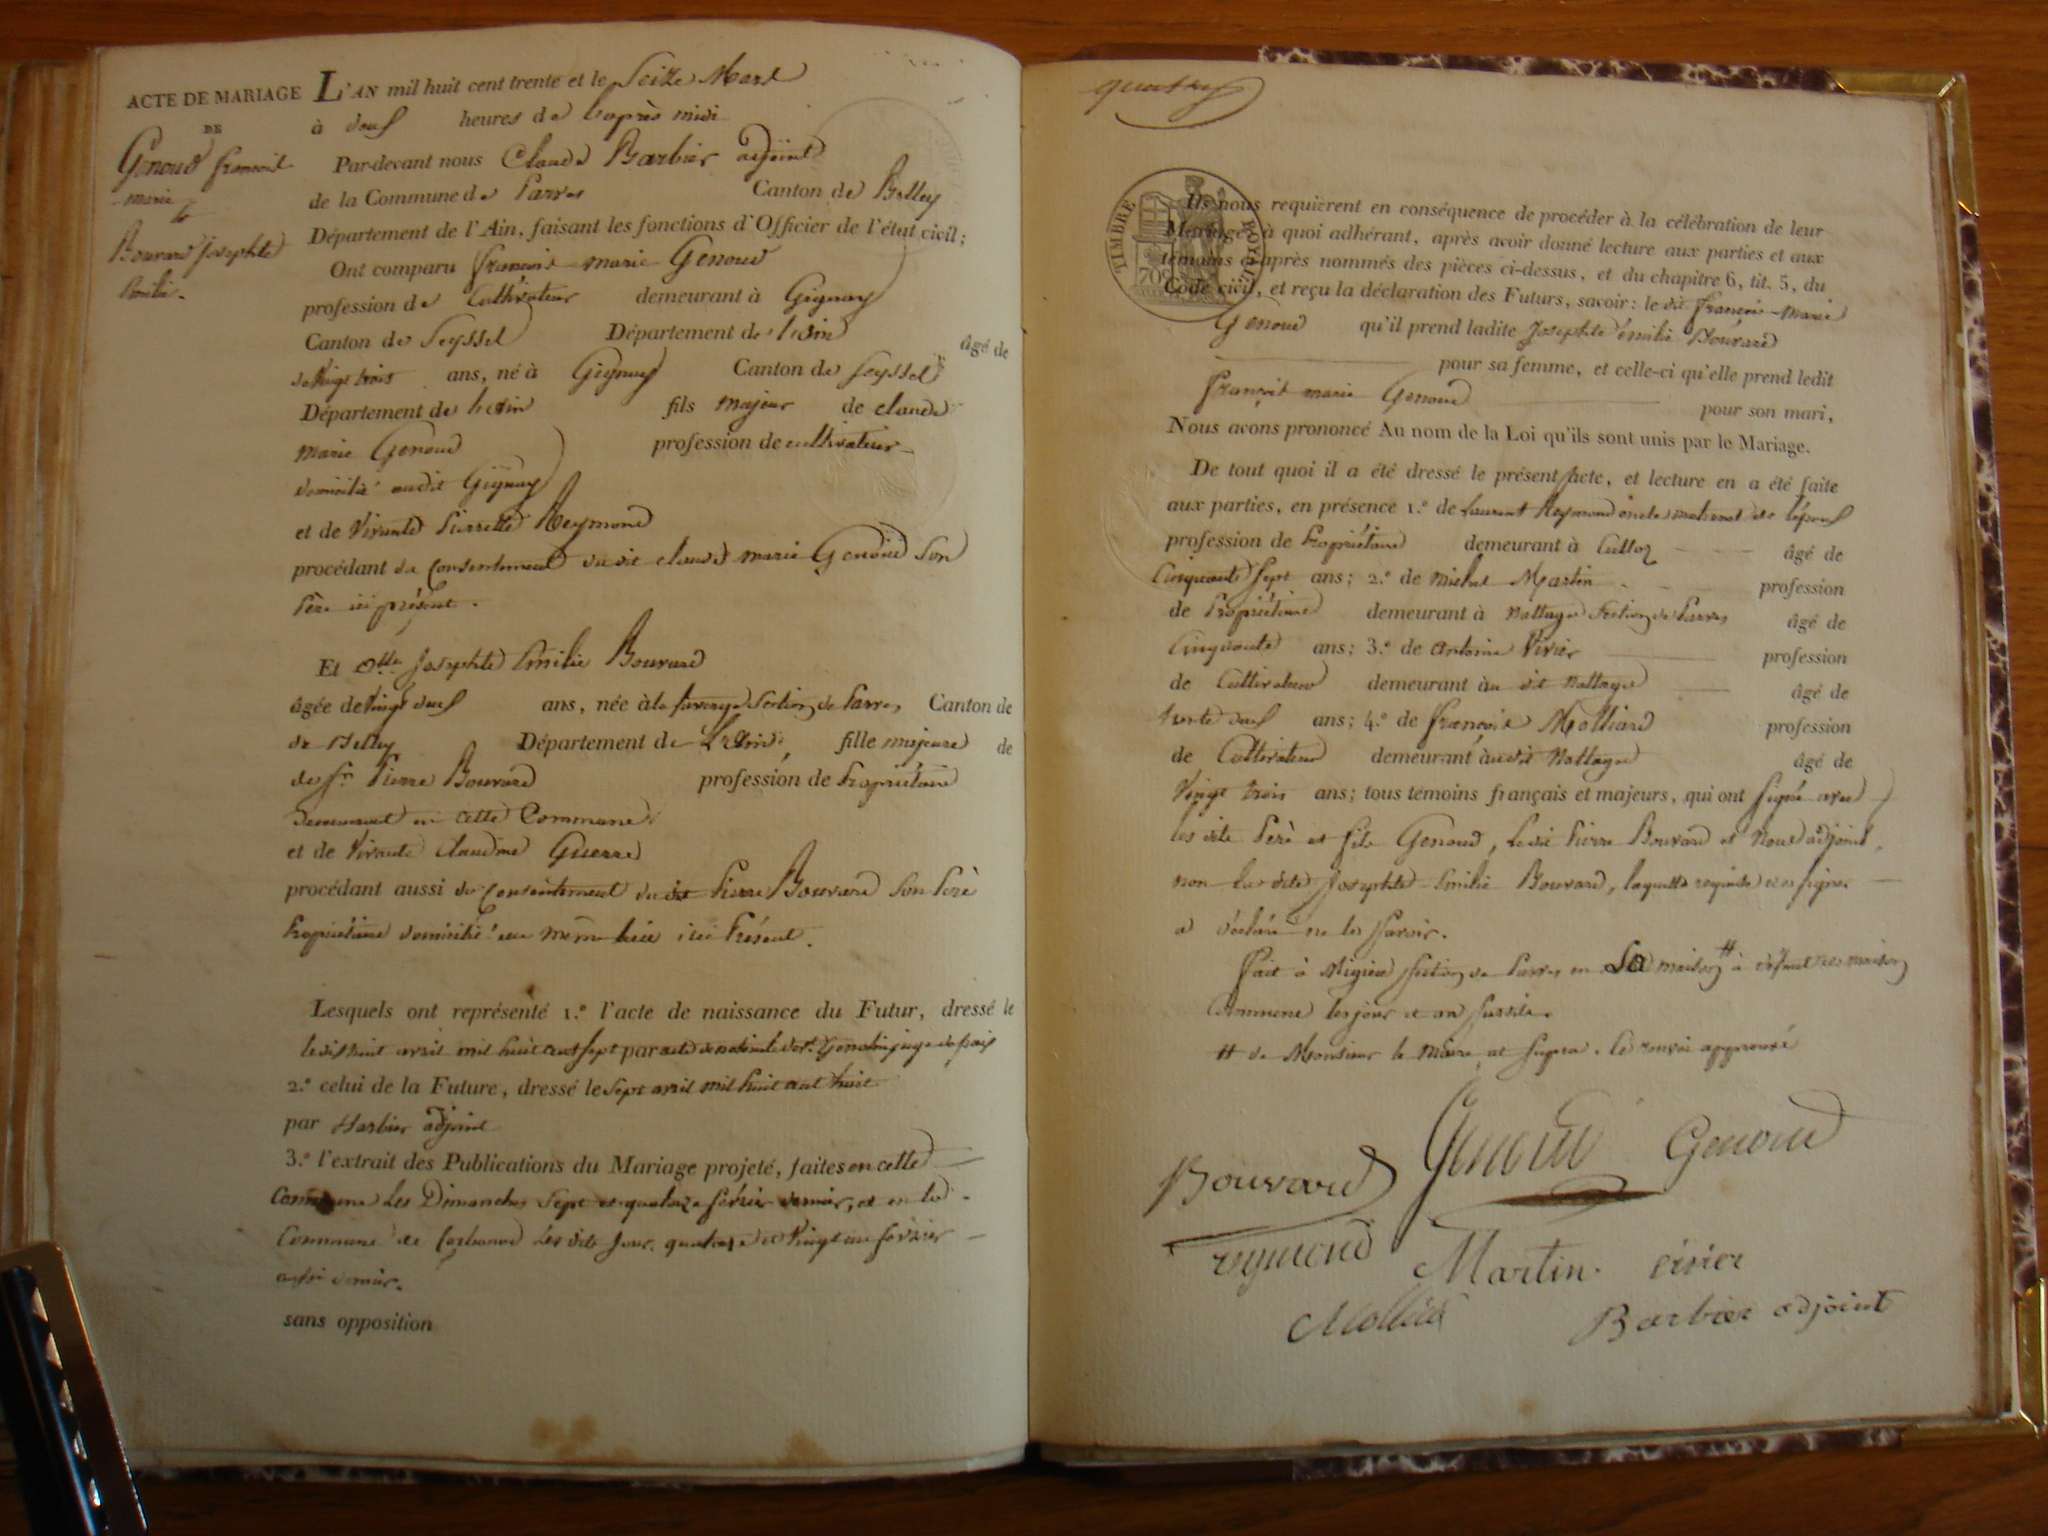 ACTE DE MARIAGE
DE
Genoud françois
marie
&
Bouvard Josephte
Emilie.
L'AN mil huit cent trente et le Seize Mars
à deux heures de l'après midi
Par-devant nous Claude Barbier adjoint
de la Commune de Parves Canton de Belley
Département de l'Ain, faisant les fonctions d'Officier de l'état civil;
Ont comparu françois marie Genoud
profession de Cultivateur demeurant à Gignay
Canton de Seyssel Département de l'ain âgé de
de Vingt trois ans, né à Gignay Canton de Seyssel
Département de l'ain fils majeur de claude
marie Genoud profession de cultivateur
domicilié audit Gignay
et de Vivante Pierrette Reymond
procédant du Consentement du dit claude marie Genoud Son
Père ici présent.
Et Dlle Josephte Emilie Bouvard
âgée de Vingt deux ans, née à la Section de Parves Canton de
de Belley Département de L'ain fille majeure de
de Sr Pierre Bouvard profession de Propriétaire
Demeurant en cette Commune
et de Vivante Claudine Guerre
procédant aussi du Consentement du dit Pierre Bouvard Son Père
Propriétaire domicilié au même lieu ici Présent.
Lesquels ont représenté 1.º l'acte de naissance du Futur, dressé le
le dix huit avril mil huit cent sept par acte de juge de paix
2.º celui de la Future, dressé le sept avril mil huit cent huit
par Barbier adjoint
3.º l'extrait des Publications du Mariage projeté, faites en cette
Commune Les Dimanches Sept et quatorze février dernier, et en la
Commune de Corbonod Les dits Jour quatorze et Vingt un février
aussi dernier.
sans opposition
TIMBRE ROYAL
70
Ils nous requièrent en conséquence de procéder à la célébration de leur
Mariage; à quoi adhérant, après avoir donné lecture aux parties et aux
témoins ci-après nommés des pièces ci-dessus, et du chapitre 6, tit. 5, du
Code civil, et reçu la déclaration des Futurs, savoir: le dit françois marie
Genoud qu'il prend ladite Josephte émilie Bouvard
pour sa femme, et celle-ci qu'elle prend ledit
françois marie Genoud pour son mari,
Nous avons prononcé Au nom de la Loi qu'ils sont unis par le Mariage.
De tout quoi il a été dressé le présent acte, et lecture en a été faite
aux parties, en présence 1.º de Laurent Reymond oncle maternel de l'époux
profession de Propriétaire demeurant à Culloz âgé de
Cinquante sept ans; 2.º de Michel Martin profession
de Propriétaire demeurant à Nattage Section de Parves âgé de
Cinquante ans; 3.º de Antoine Vivier profession
de Cultivateur demeurant au dit Nattage âgé de
trente deux ans; 4.º de françois Molliard profession
de Cultivateur demeurant audit Nattage âgé de
Vingt trois ans; tous témoins français et majeurs, qui ont Signé avec
les dits Père et fils Genoud, Le dit Pierre Bouvard et Nous adjoint,
non la dite Josephte Emilie Bouvard, laquelle requise de signer
a déclaré ne le savoir.
fait à Section de Parves en La maison # à défaut de maison
Commune les jour et an susdits.
# de Monsieur le Maire ut supra. Ce renvoi approuvé
Bouvard Genoud Genoud
reymond Martin. vivier
Barbier adjoint